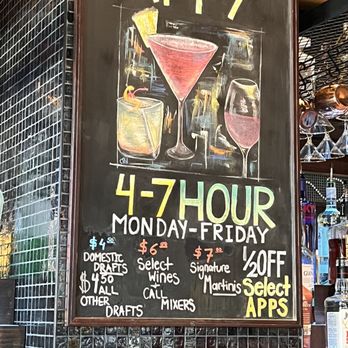 4-7 HOUR
MONDAY-FRIDAY
$4.00
DOMESTIC
DRAFTS
$4.50
ALL
OTHER
DRAFTS
$6.00
Select
Wines
CALL
MIXERS
$7.00
Signature
Martinis
1/2 OFF
Select
APPS